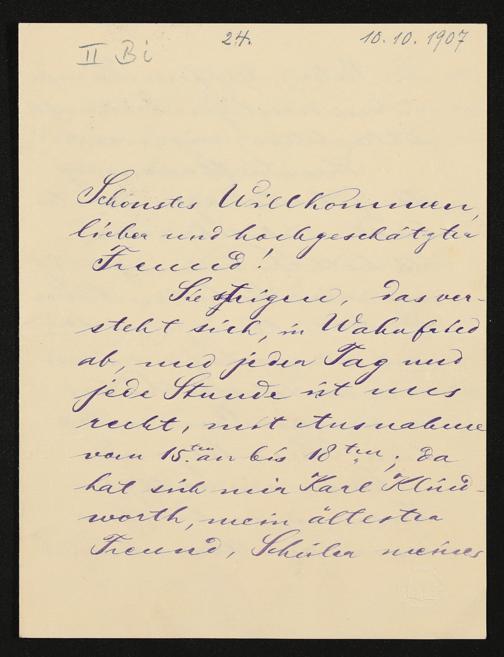 II Bi
24.
10.10.1907
Schönstes Willkommen,
lieber und hochgeschätzter
Freund!
Sie steigen, das ver-
steht sich, in Wahnfried
ab, und jeder Tag und
jede Stunde ist uns
recht, mit Ausnahme
vom 15.ten an bis 18ten; da
hat sich mir Karl Klind-
worth, mein ältester
Freund, Schüler meines